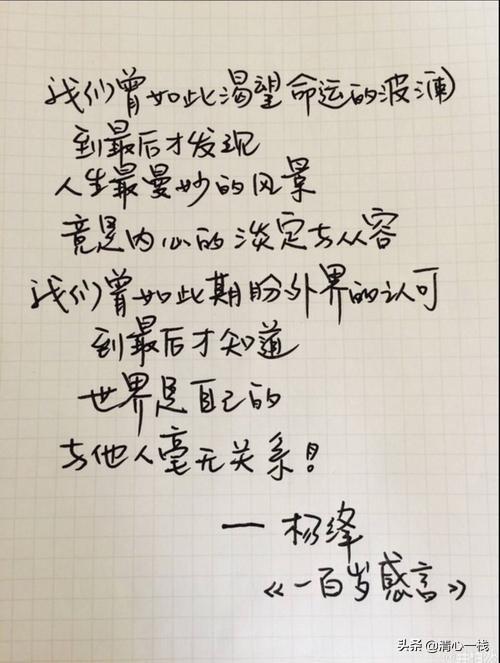 我们曾如此渴望命运的波澜
到最后才发现
人生最曼妙的风景
竟是内心的淡定与从容
我们曾如此期盼外界的认可
到最后才知道
世界是自己的
与他人毫无关系!
— 杨绛
《一百岁感言》
头条 @清心一栈